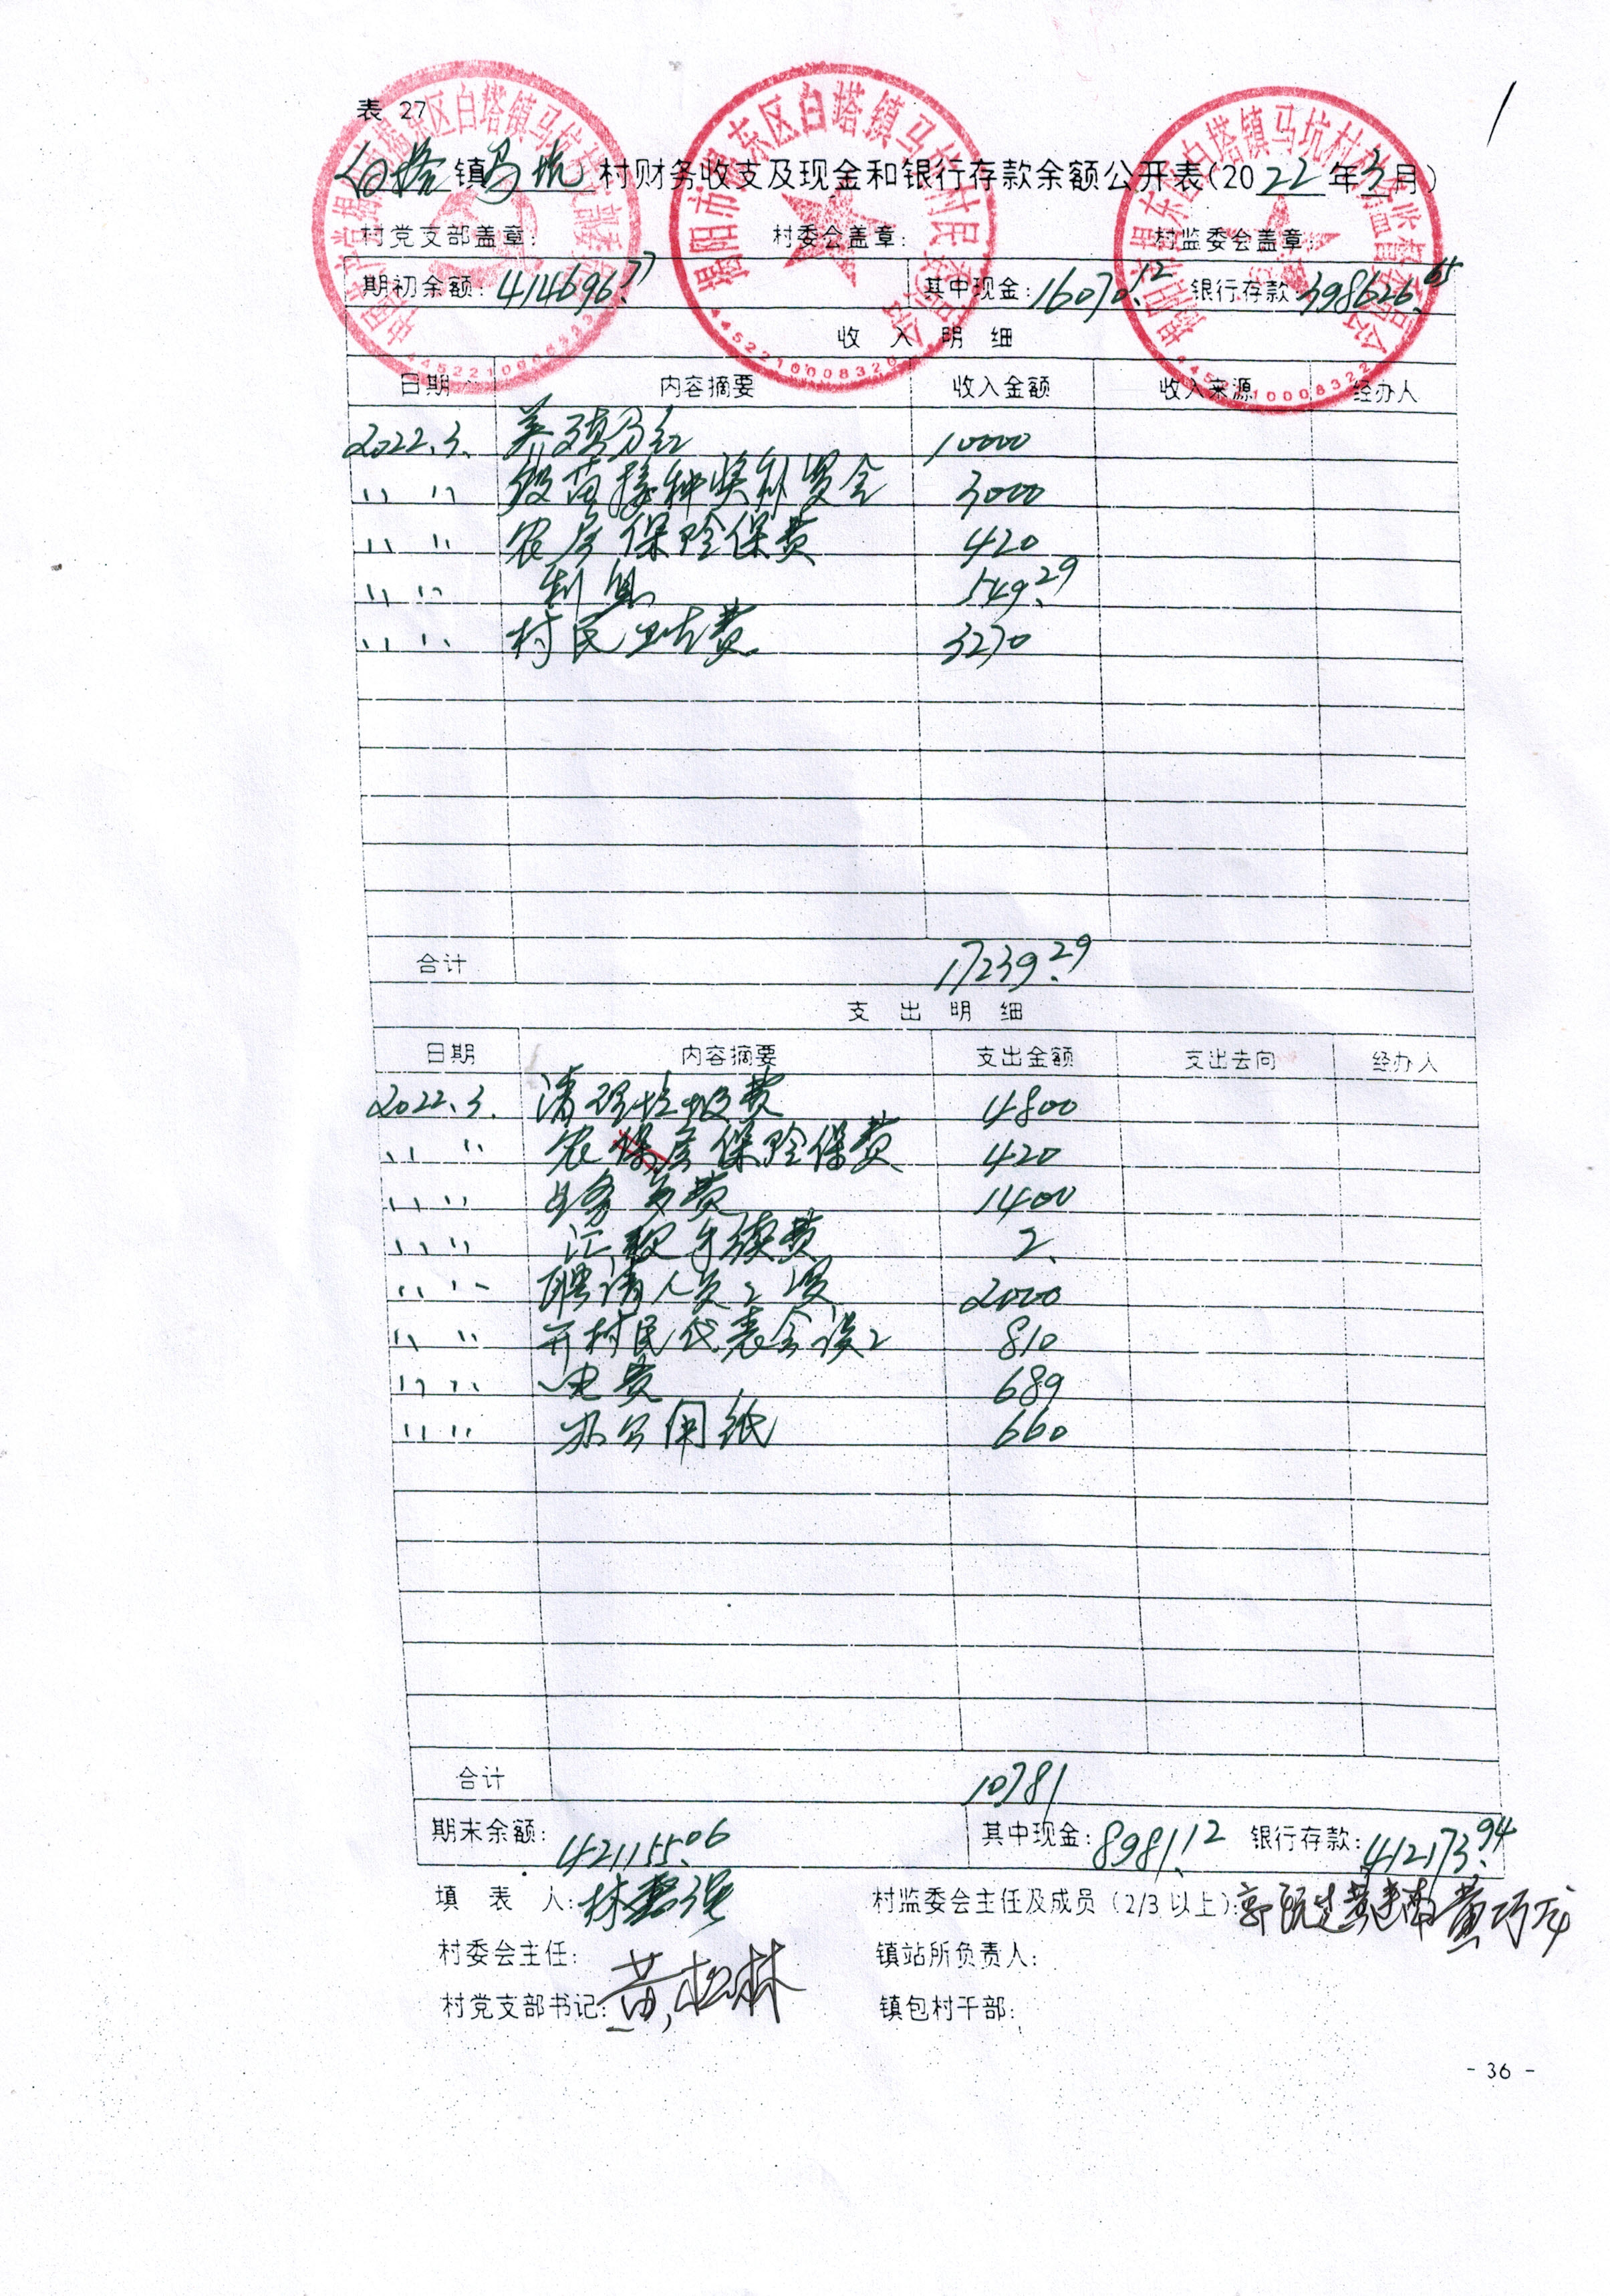 表 27
白塔镇马坑村财务收支及现金和银行存款余额公开表(2022年3月)
村党支部盖章: 村委会盖章: 村监委会盖章:
期初余额:414696.77 其中现金:16070.12 银行存款:398626.65
收入明细
日期 内容摘要 收入金额 收入来源 经办人
2022.3. 分红 10000
〃 〃 疫苗接种奖补资金 3000
〃 〃 农房保险保费 420
〃 〃 利息 549.29
〃 〃 村民卫生费 3270
合计 17239.29
支出明细
日期 内容摘要 支出金额 支出去向 经办人
2022.3. 清理垃圾费 4800
〃 〃 农房保险保费 420
〃 〃 业务费 1400
〃 〃 汇款手续费 2.
〃 〃 聘请人员工资 2000
〃 〃 开村民代表会误工 810
〃 〃 电费 689
〃 〃 办公用纸 660
合计 10781
期末余额:421155.06 其中现金:8981.12 银行存款:412173.94
填表人:林 强 村监委会主任及成员(2/3以上):
村委会主任: 镇站所负责人:
村党支部书记:黄松林 镇包村干部:
- 36 -